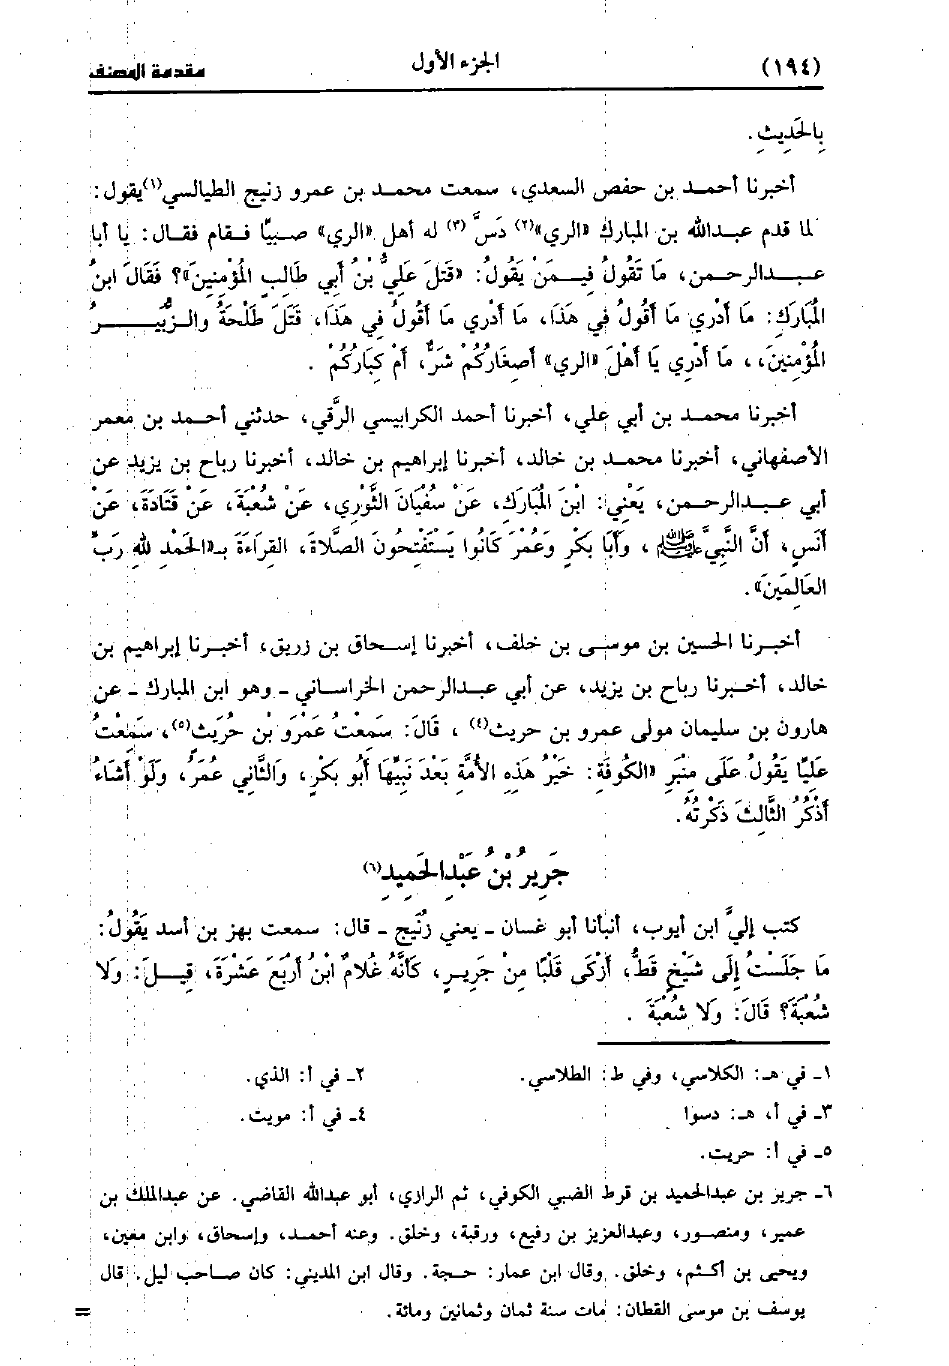 (١٩٤) الجزء الأول مقدمة المصنف
بِالحَدِيثِ.
أخبرنا أحمد بن حفص السعدي، سمعت محمد بن عمرو زنيج الطيالسي(١) يقول:
لما قدم عبدالله بن المبارك «الري»(٢) دَسَّ(٣) له أهل «الري» صبيًا فقام فقال: يا أبا
عبدالرحمن، مَا تَقُولُ فِيمَنْ يَقُولُ: «قَتَلَ عَلِيُّ بْنُ أَبِي طَالِبٍ المُؤْمِنِينَ»؟ فَقَالَ ابنُ
المُبَارَكِ: مَا أَدْرِي مَا أَقُولُ فِي هَذَا، مَا أَدْرِي مَا أَقُولُ فِي هَذَا، قَتَلَ طَلْحَةُ والزُّبَيرُ
المُؤْمِنِينَ،، مَا أَدْرِي يَا أَهْلَ «الري» أَصِغَارُكُمْ شَرٌّ، أَمْ كِبَارُكُمْ.
أخبرنا محمد بن أبي علي، أخبرنا أحمد الكرابيسي الرَّقي، حدثني أحمد بن معمر
الأصفهاني، أخبرنا محمد بن خالد، أخبرنا إبراهيم بن خالد، أخبرنا رباح بن يزيد عن
أبي عبدالرحمن، يَعْنِي: ابْنَ المُبَارَكِ، عَنْ سُفْيَانَ الثَّوْرِي، عَنْ شُعْبَةَ، عَنْ قَتَادَةَ، عَنْ
أَنَسٍ، أَنَّ النَّبِيَّ ﷺ، وَأَبَا بَكْرٍ وَعُمَرَ كَانُوا يَسْتَفْتِحُونَ الصَّلَاةَ، القِرَاءَةَ بـ«الحَمْدِ للهِ رَبِّ
العَالَمِينَ».
أخبرنا الحسين بن موسى بن خلف، أخبرنا إسحاق بن زريق، أخبرنا إبراهيم بن
خالد، أخبرنا رباح بن يزيد، عن أبي عبدالرحمن الخراساني ـ وهو ابن المبارك ـ عن
هارون بن سليمان مولى عمرو بن حريث(٤)، قَالَ: سَمِعْتُ عَمْرَو بْنَ حُرَيْثٍ(٥)، سَمِعْتُ
عَلِيًّا يَقُولُ عَلَى مِنْبَرِ «الكُوفَةِ: خَيْرُ هَذِهِ الأُمَّةِ بَعْدَ نَبِيِّهَا أَبُو بَكْرٍ، وَالثَّانِي عُمَرُ، وَلَوْ أَشَاءُ
أَذْكُرُ الثَّالِثَ ذَكَرْتُهُ.
جَرِيرُ بْنُ عَبْدِالحَمِيدِ(٦)
كتب إليَّ ابن أيوب، أنبأنا أبو غسان ـ يعني زُنَيج ـ قال: سمعت بهز بن أسد يَقُولُ:
مَا جَلَسْتُ إِلَى شَيْخٍ قَطُّ، أَزْكَى قَلْبًا مِنْ جَرِيرٍ، كَأَنَّهُ غُلَامٌ ابْنُ أَرْبَعَ عَشْرَةَ، قِيلَ: وَلَا
شُعْبَةَ؟ قَالَ: وَلَا شُعْبَةَ.
١ـ في هـ: الكلاسي، وفي ط: الطلاسي. ٢ـ في أ: الذي.
٣ـ في أ، هـ: دسوا ٤ـ في أ: مويت.
٥ـ في أ: حريت.
٦ـ جرير بن عبدالحميد بن قرط الضبي الكوفي، ثم الرازي، أبو عبدالله القاضي. عن عبدالملك بن
عمير، ومنصور، وعبدالعزيز بن رفيع، ورقبة، وخلق. وعنه أحمد، وإسحاق، وابن معين،
ويحيى بن أكثم، وخلق. وقال ابن عمار: حجة. وقال ابن المديني: كان صاحب ليل. قال
يوسف بن موسى القطان: مات سنة ثمان وثمانين ومائة. =